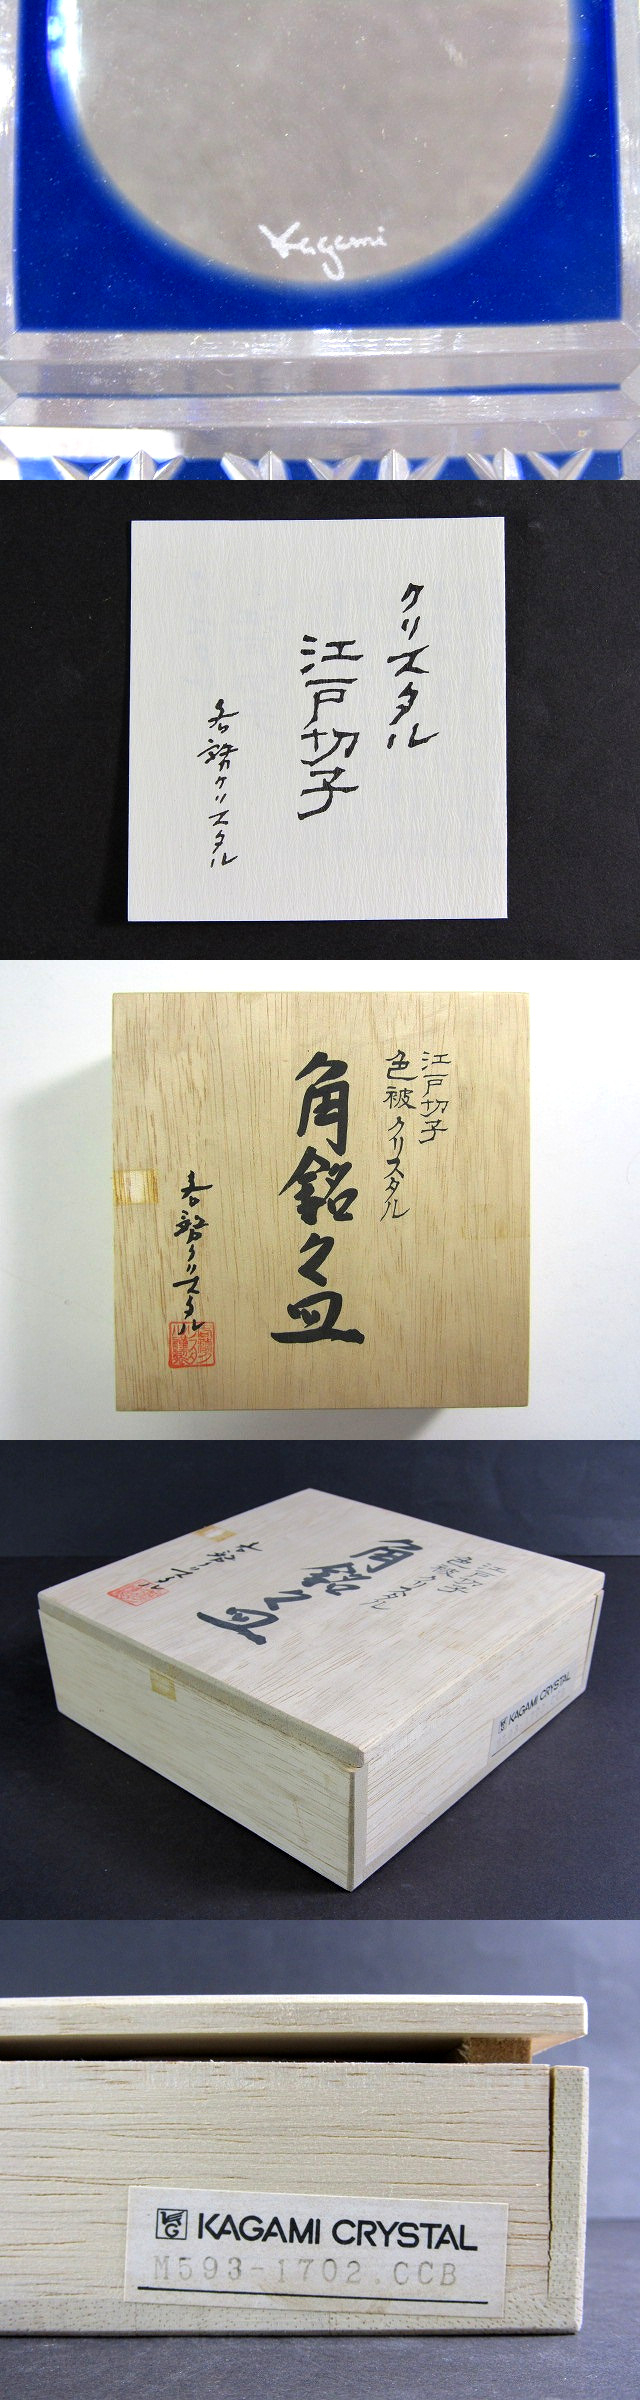 Kagami
クリスタル
江戸切子
各務クリスタル
江戸切子
色被クリスタル
角銘々皿
各務クリスタル
江戸切子
色被クリスタル
角銘々皿
各務クリスタル
KAGAMI CRYSTAL
KAGAMI CRYSTAL
M593-1702.CCB